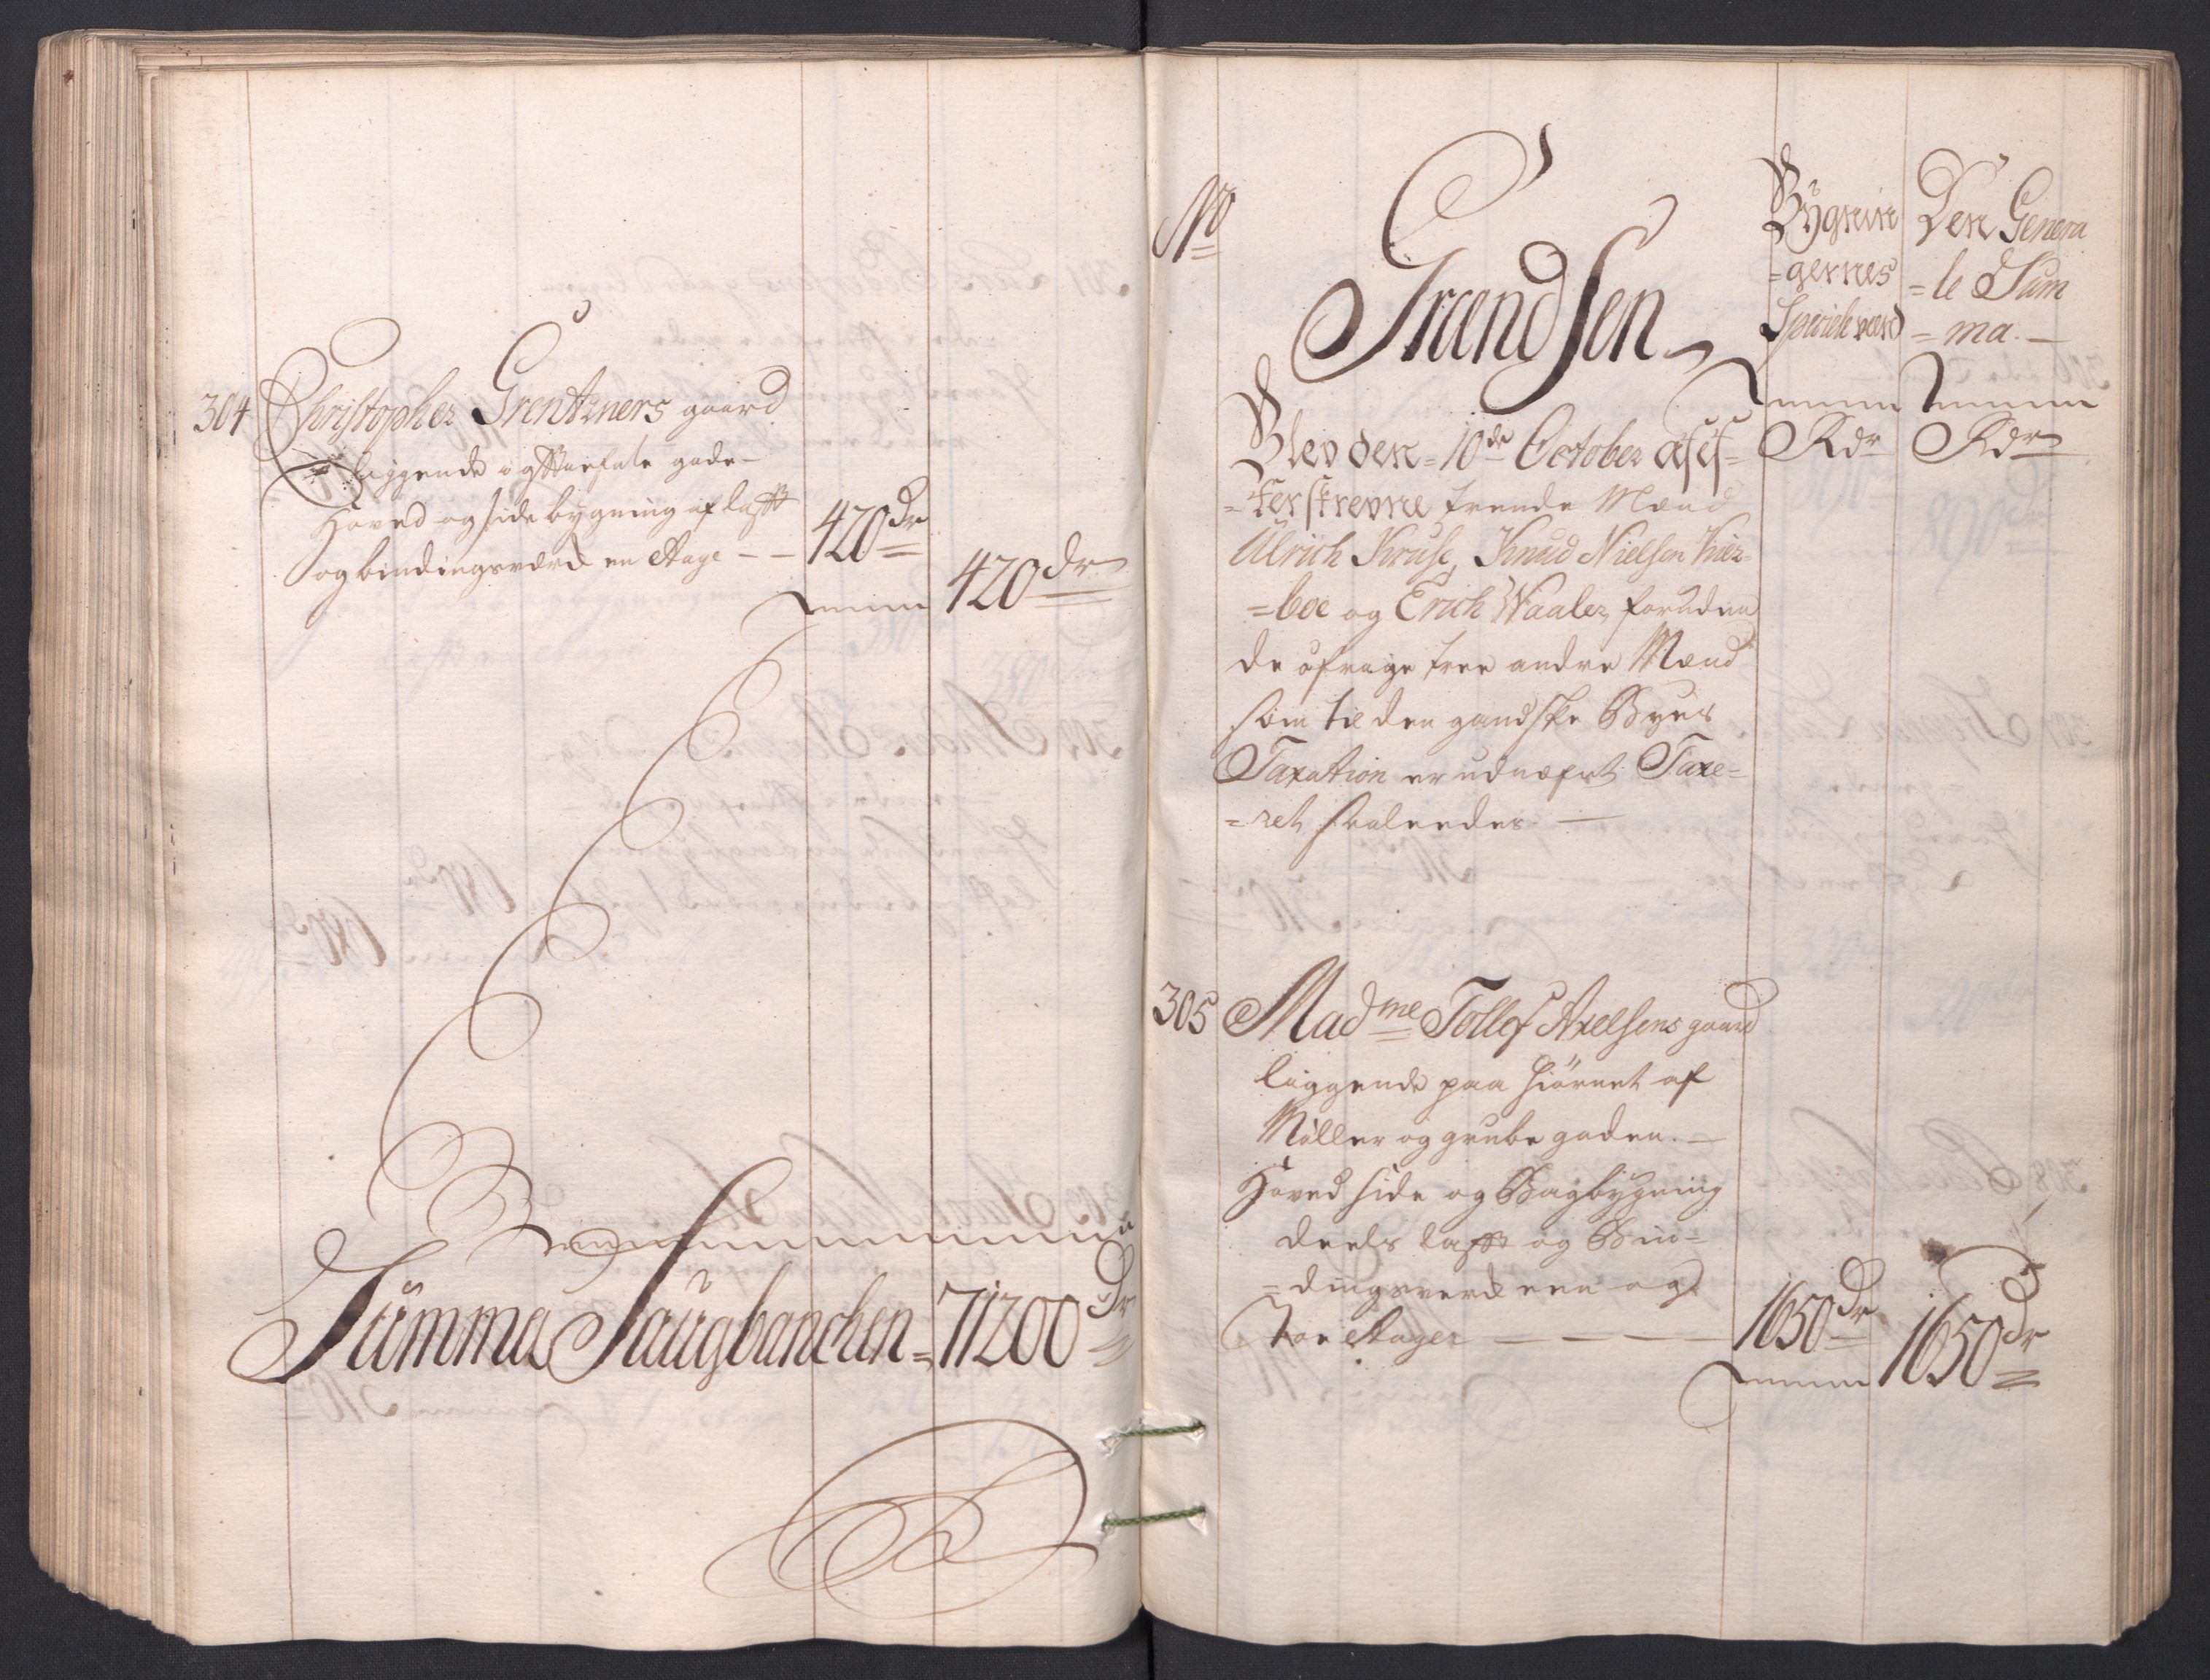 304 Christopher Grentzners gaard
liggende i
Hoved og side bygning af lafft
og bindingsværck en Etage - - 420 dr
420 dr
Summa Saugbanchen = 71200 dr
No
Grændsen
Bygnin
=gernes
Speciele værd
Den Genera
=le Sum
=ma. —
Rdr Rdr
Blev den = 10de October af ef=
=terskrevne trende Mænd
Ulrich Kruse, Knud Nielsen Kier=
=boe og Erich Waaler, foruden
de øfrige tree andre Mænd
som til den gandske Byes
Taxation er udnæfnt Taxe=
=ret saaleedes —
305 Madme Tollef Axelsens gaard
liggende paa Hiørnet af
Møller og grube gaden. —
Hoved side og Bagbygning
deels lafft og Bin=
=dingsverck een og
toe Etager — — — — 1650 dr
1650 dr